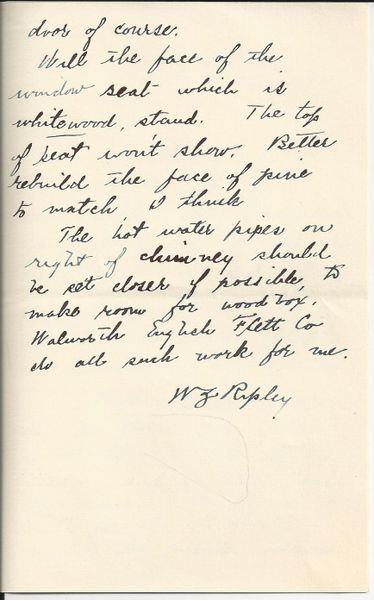 door of course.
Will the face of the
window seat which is
whitewood, stand. The top
of seat won't show. Better
rebuild the face of pine
to match, I think
The hot water pipes on
right of chimney should
be set closer if possible, to
make room for woodbox.
Walworth English Flett Co
do all such work for me.
W Z Ripley